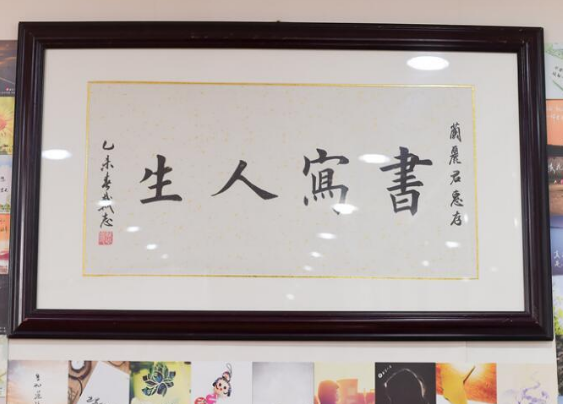 蘭麗君惠存
書寫人生
乙未春